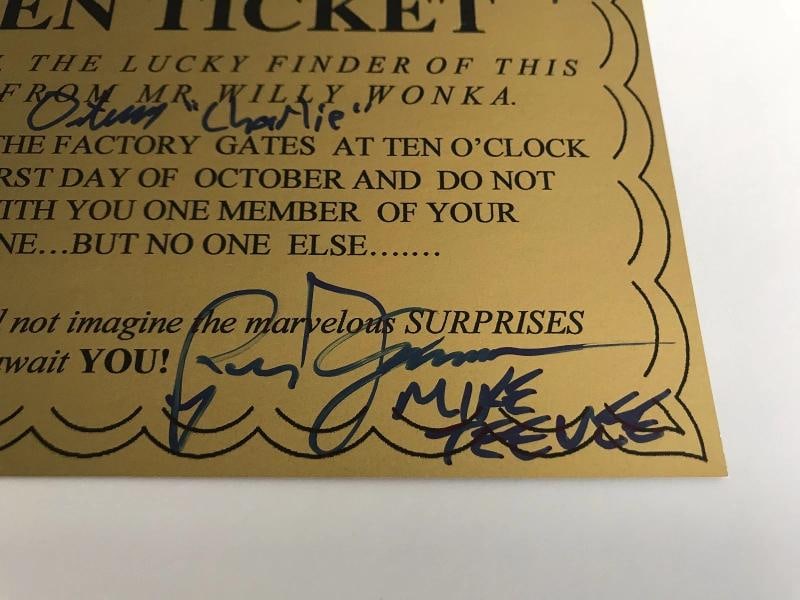 EN TICKET
THE LUCKY FINDER OF THIS
FROM MR WILLY WONKA.
"Charlie"
THE FACTORY GATES AT TEN O'CLOCK
RST DAY OF OCTOBER AND DO NOT
ITH YOU ONE MEMBER OF YOUR
NE...BUT NO ONE ELSE.......
l not imagine the marvelous SURPRISES
await YOU!
MIKE
TEEVEE